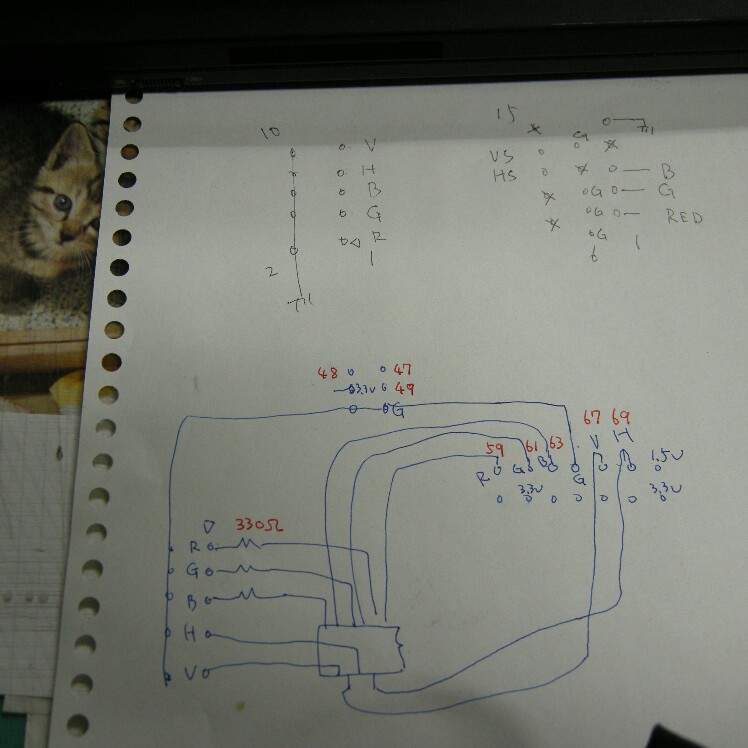 10
V
H
B
G
R
1
2
15
G
VS
HS
B
G
G
G
RED
G
1
6
48
47
3.3V
49
G
67
69
V
H
59
61
63
R
G
B
G
1.5V
3.3V
3.3V
330Ω
R
G
B
H
V